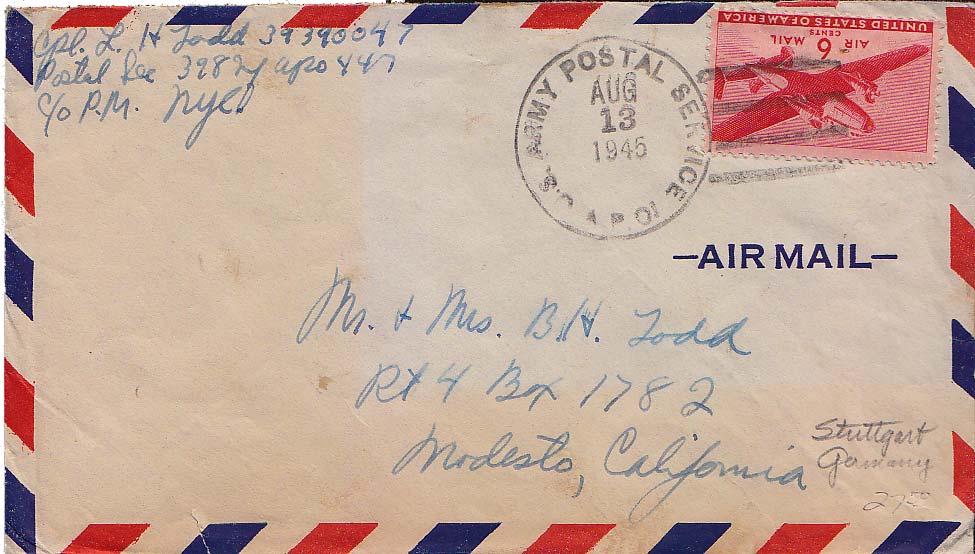 Cpl. L. H Todd 39390047
Postal Sec 3982 apo 447
c/o P.M. NYC
U.S. ARMY POSTAL SERVICE
AUG
13
1945
A.P.O.
UNITED STATES OF AMERICA
6 CENTS
AIR MAIL
—AIR MAIL—
Mr. & Mrs. B.H. Todd
Rt 4 Box 1782
Modesto, California
Stuttgart
Germany
27.50